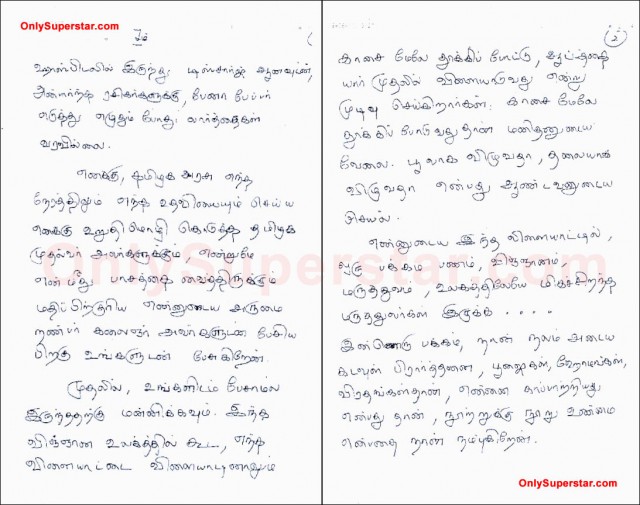 OnlySuperstar.com
உ
ஹாஸ்பிடலில் இருந்து டிஸ்சார்ஜ் ஆனவுடன்,
அன்பார்ந்த ரசிகர்களுக்கு, பேனா பேப்பர்
எடுத்து எழுதும் போது வார்த்தைகள்
வரவில்லை.
எனக்கு, தமிழக அரசு எந்த
நேரத்திலும் எந்த உதவியையும் செய்ய
எனக்கு உறுதிமொழி கொடுத்த தமிழக
முதல்வர் அவர்களுக்கும், என்றுமே
என் மீது பாசத்தை வைத்திருக்கும்
மதிப்பிற்குரிய என்னுடைய அருமை
நண்பர் கலைஞர் அவர்களுடன் பேசிய
பிறகு உங்களுடன் பேசுகிறேன்.
முதலில், உங்களிடம் பேசாமல
இருந்ததற்கு மன்னிக்கவும். இந்த
விஞ்ஞான உலகத்தில் கூட, எந்த
விளையாட்டை விளையாடினாலும்
2
காசை மேலே தூக்கிப் போட்டு, ஆட்டத்தை
யார் முதலில் விளையாடுவது என்று
முடிவு செய்கிறார்கள். காசை மேலே
தூக்கிப் போடுவதுதான் மனிதனுடைய
வேலை. பூவாக விழுவதா, தலையாக
விழுவதா என்பது ஆண்டவனுடைய
செயல்.
என்னுடைய இந்த விளையாட்டில்,
ஒரு பக்கம் பணம், விஞ்ஞானம்,
மருத்துவம், உலகத்திலேயே மிகச்சிறந்த
மருத்துவர்கள் இருக்க ....
இன்னொரு பக்கம், நான் நலம் அடைய
கடவுள் பிரார்த்தனை, பூஜைகள், ஹோமங்கள்,
விரதங்கள்தான், என்னை காப்பாற்றியது
என்பது தான், நூற்றுக்கு நூறு உண்மை
என்பதை நான் நம்புகிறேன்.
OnlySuperstar.com
OnlySuperstar.com